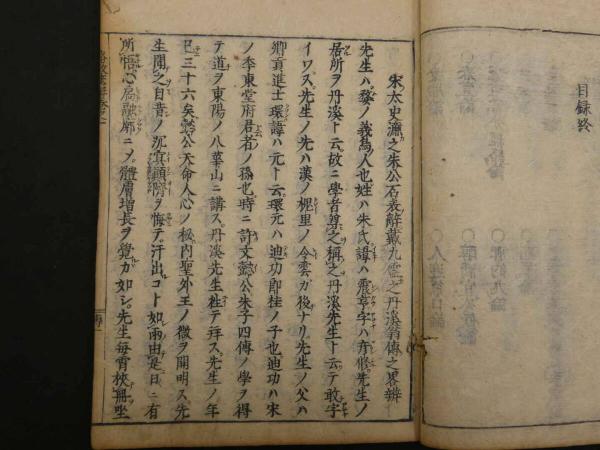 目録終
宋太史濂之朱公石表辭戴九靈之丹溪翁傳之畧辨
先生ハ婺ノ義烏人也姓ハ朱氏諱ハ震亨字ハ彦修先生ノ
居所ヲ丹溪ト云故ニ學者尊之稱之丹溪先生ト云テ敢字
イワス先生ノ先ハ漢ノ槐里ノ令雲カ後ナリ先生ノ父ハ
郷貢進士環諱ハ元ト云環元ハ迪功郎桂ノ子也迪功ハ宋
ノ季東堂府君者ノ孫也時ニ許文懿公朱子四傳ノ學ヲ得
テ道ヲ東陽ノ八華山ニ講ス丹溪先生往テ拜ス先生ノ年
已三十六矣懿公天命人心ノ秘内聖外王ノ微ヲ開明ス先
生聞之自昔ノ沉寘顛隮ヲ悔テ汗出コト如雨由是日ニ有
所悟心扃融廓ニメ體膚増長ヲ覺カ如シ先生毎宵挾冊坐